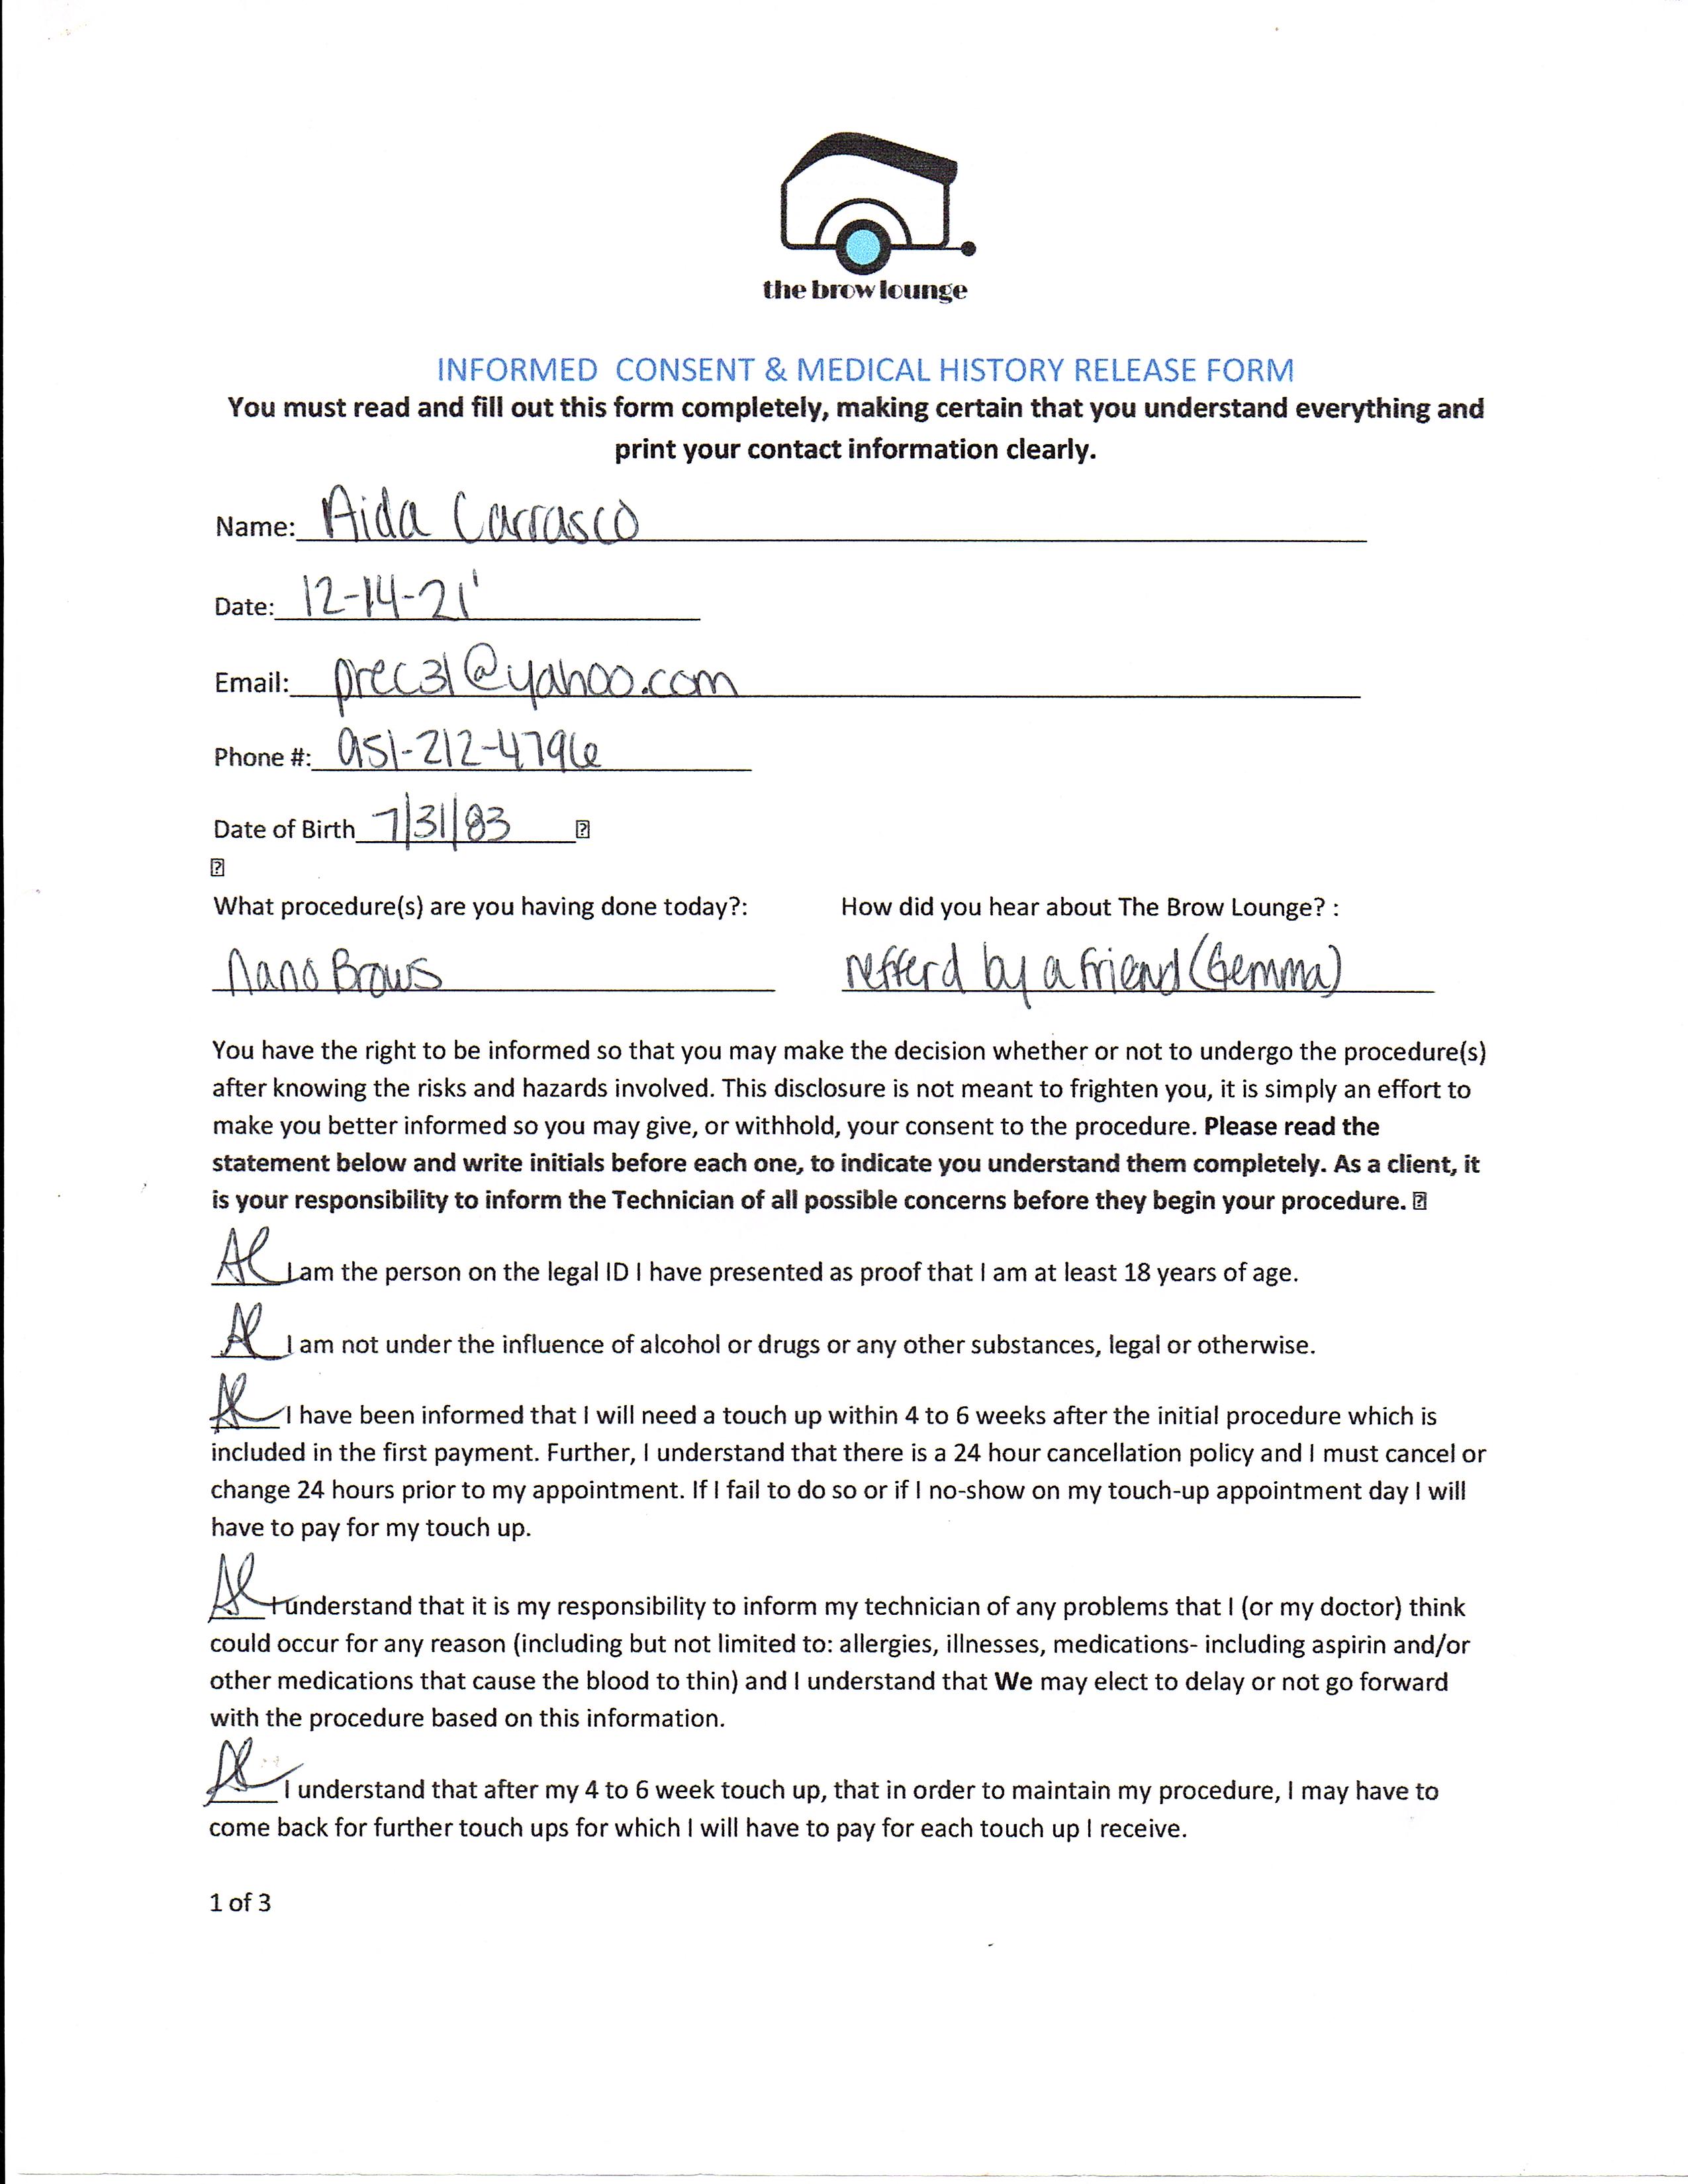 the brow lounge
INFORMED CONSENT & MEDICAL HISTORY RELEASE FORM
You must read and fill out this form completely, making certain that you understand everything and
print your contact information clearly.
Name: Aida Carrasco
Date: 12-14-21'
Email: prec31@yahoo.com
Phone #: 951-212-4796
Date of Birth 7/31/83
What procedure(s) are you having done today?: How did you hear about The Brow Lounge? :
Nano Brows refferd by a friend (Gemma)
You have the right to be informed so that you may make the decision whether or not to undergo the procedure(s)
after knowing the risks and hazards involved. This disclosure is not meant to frighten you, it is simply an effort to
make you better informed so you may give, or withhold, your consent to the procedure. Please read the
statement below and write initials before each one, to indicate you understand them completely. As a client, it
is your responsibility to inform the Technician of all possible concerns before they begin your procedure.
AC I am the person on the legal ID I have presented as proof that I am at least 18 years of age.
AC I am not under the influence of alcohol or drugs or any other substances, legal or otherwise.
AC I have been informed that I will need a touch up within 4 to 6 weeks after the initial procedure which is
included in the first payment. Further, I understand that there is a 24 hour cancellation policy and I must cancel or
change 24 hours prior to my appointment. If I fail to do so or if I no-show on my touch-up appointment day I will
have to pay for my touch up.
AC I understand that it is my responsibility to inform my technician of any problems that I (or my doctor) think
could occur for any reason (including but not limited to: allergies, illnesses, medications- including aspirin and/or
other medications that cause the blood to thin) and I understand that We may elect to delay or not go forward
with the procedure based on this information.
AC I understand that after my 4 to 6 week touch up, that in order to maintain my procedure, I may have to
come back for further touch ups for which I will have to pay for each touch up I receive.
1 of 3